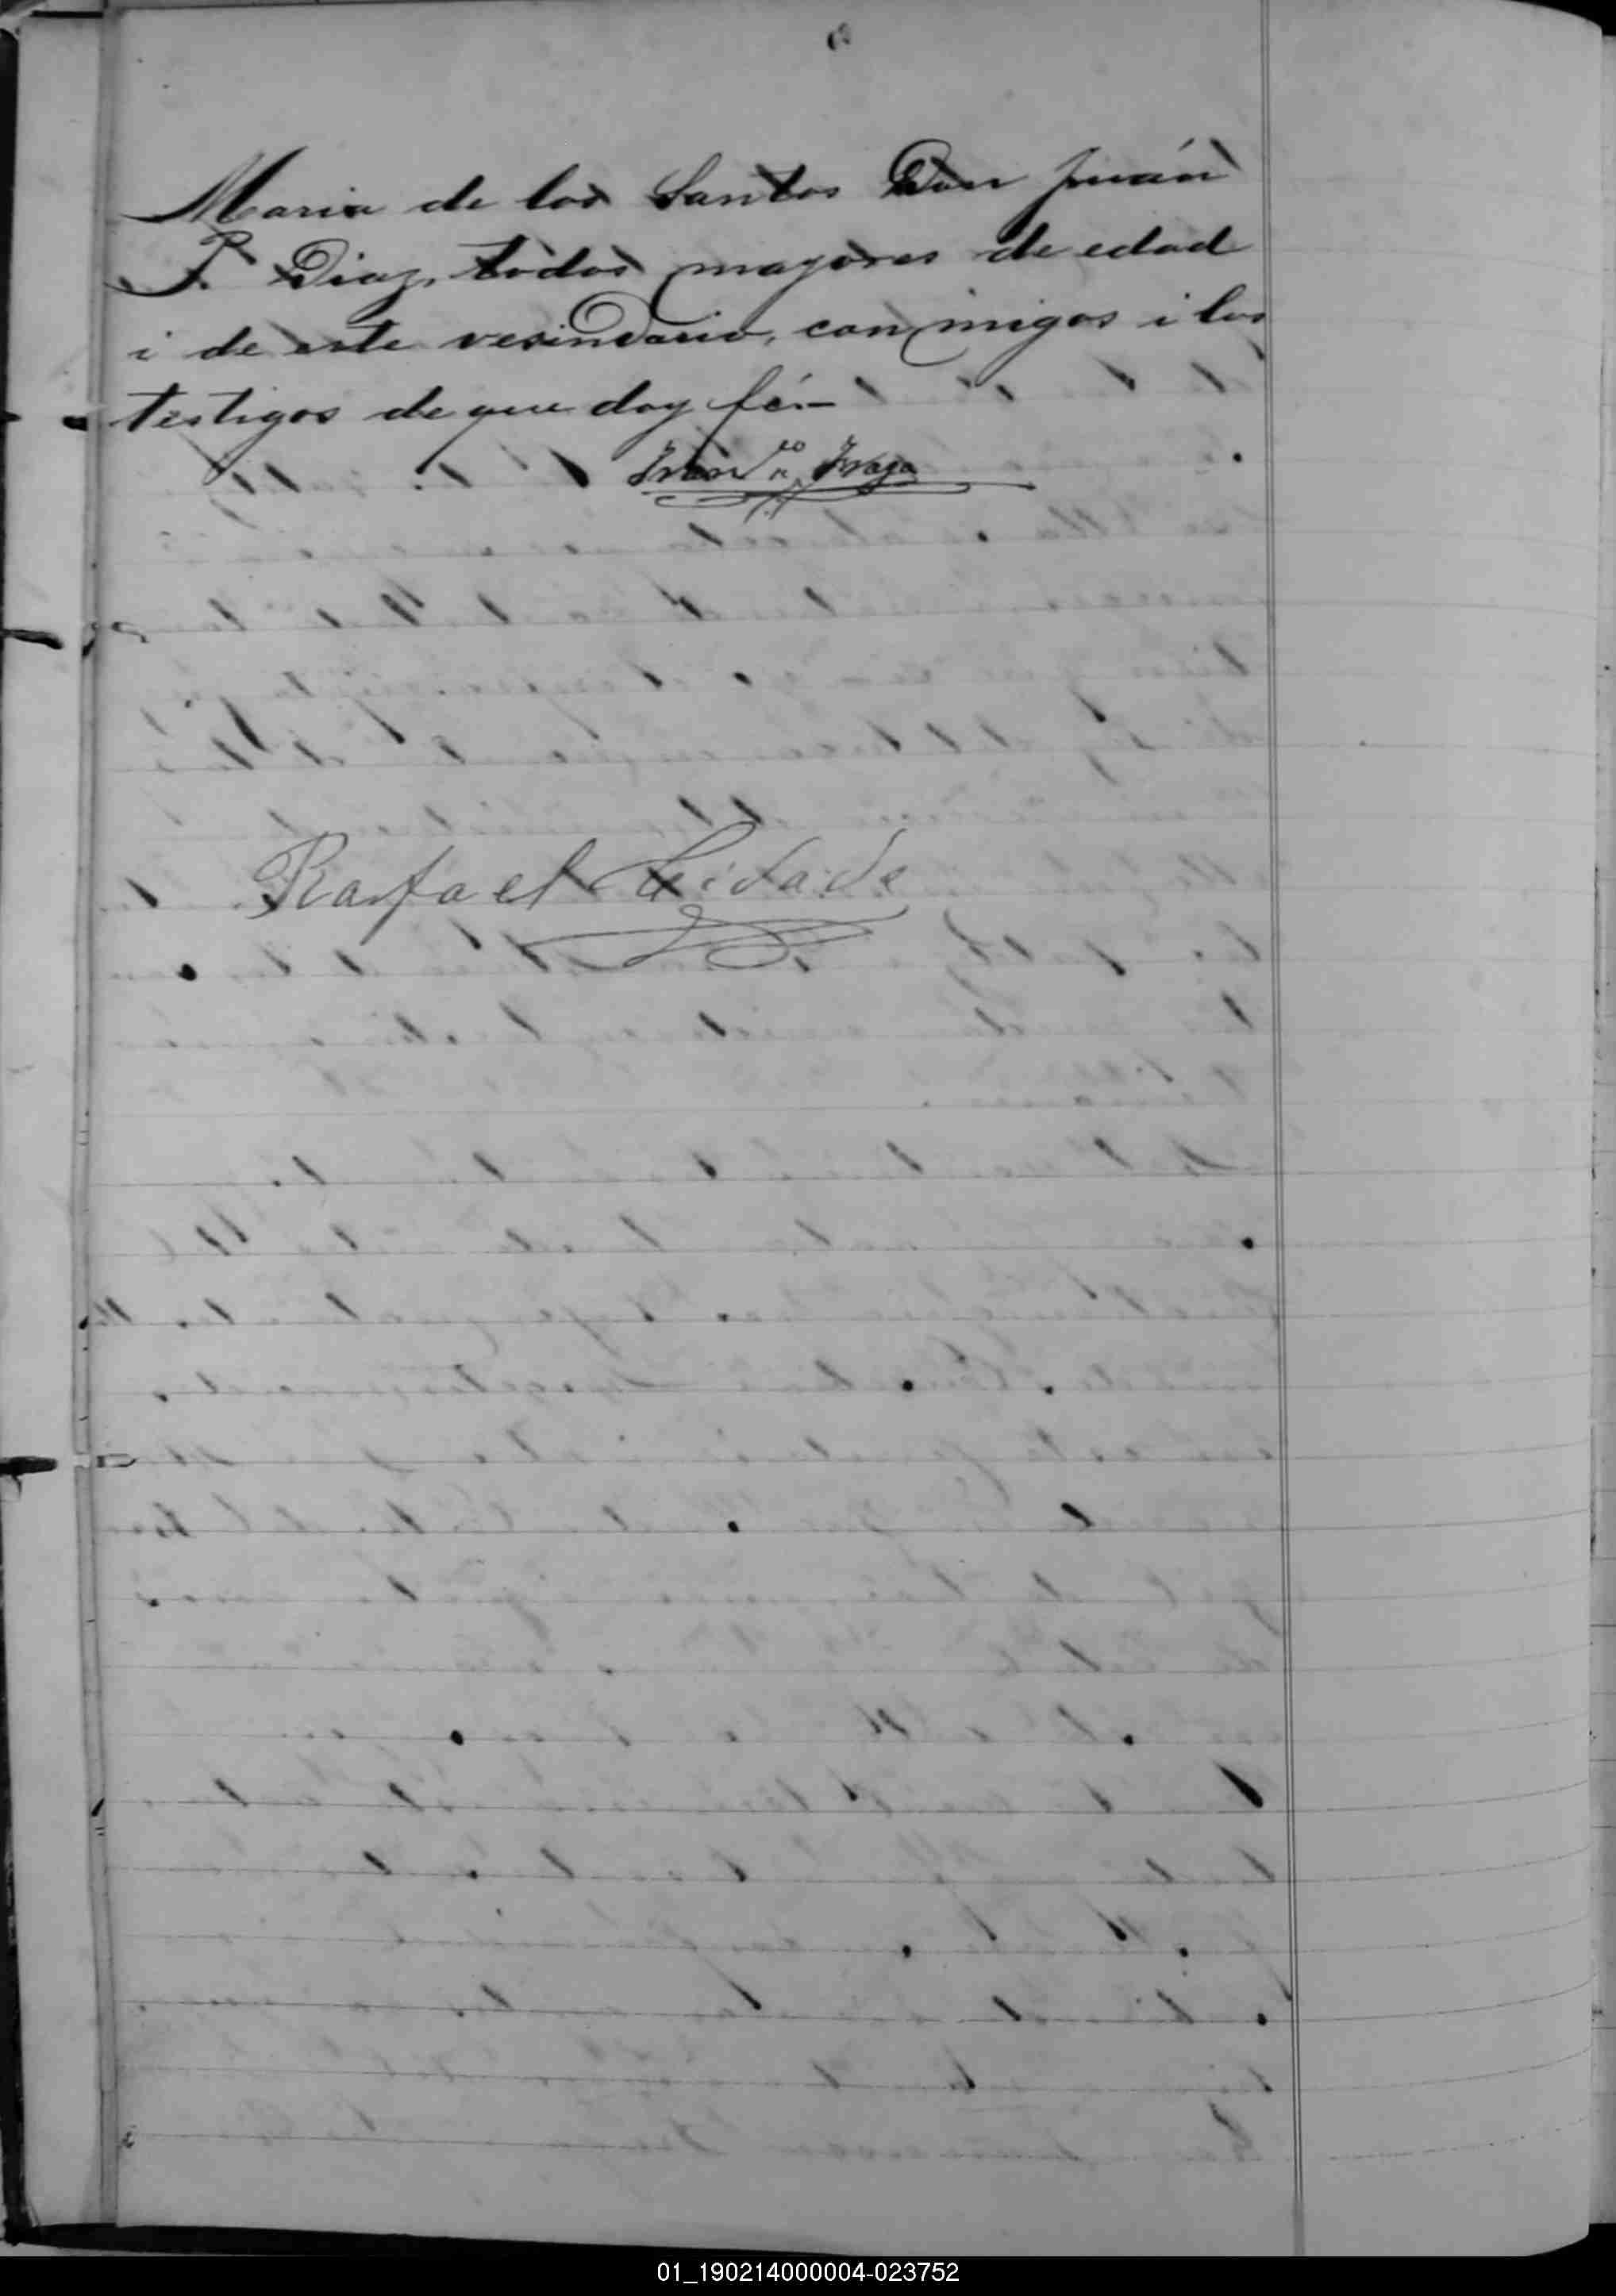 Maria de los Santos Don Juán
P. Diaz, todos mayores de edad
i de este vesindario, conmigos i los
testigos de que doy fé.—
Fraga
Rafael
01_190214000004-023752